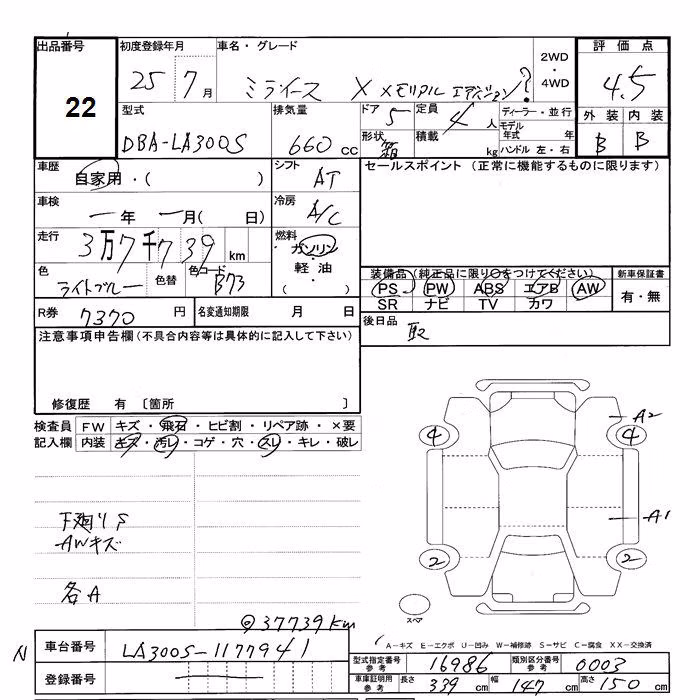 出品番号 初度登録年月 車名・グレード 2WD・4WD 評価点
22 25 7月 ミライース X メモリアル エディション? 4.5
型式 排気量 ドア 5 定員 4人 ディーラー・並行 外装 内装
DBA-LA300S 660 cc 形状 箱 積載 kg モデル年式 年 B B
ハンドル 左・右
車歴 シフト セールスポイント (正常に機能するものに限ります)
自家用・( ) AT
車検 冷房
一年 一月( 日) A/C
走行 燃料
3万7千739 km ガソリン・軽油 ( )
色 色替 色コード 装備品 (純正品に限り○をつけてください) 新車保証書
ライトブルー B73 PS PW ABS エアB AW 有・無
SR ナビ TV カワ
R券 7370 円 名変通知期限 月 日 後日品
取
注意事項申告欄(不具合内容等は具体的に記入して下さい)
修復歴 有 〔箇所 〕
検査員 FW キズ・飛石・ヒビ割・リペア跡・×要
記入欄 内装 キズ・汚レ・コゲ・穴・スレ・キレ・破レ
A2
4 4
A1
下廻りS
AWキズ
2 2
各A
スペア
◎37739km
A-キズ E-エクボ U-凹み W-補修跡 S-サビ C-腐食 XX-交換済
N 車台番号 LA300S-1177941
型式指定番号 参考 16986 類別区分番号 参考 0003
登録番号
車庫証明用 参考 長さ 339 cm 幅 147 cm 高さ 150 cm